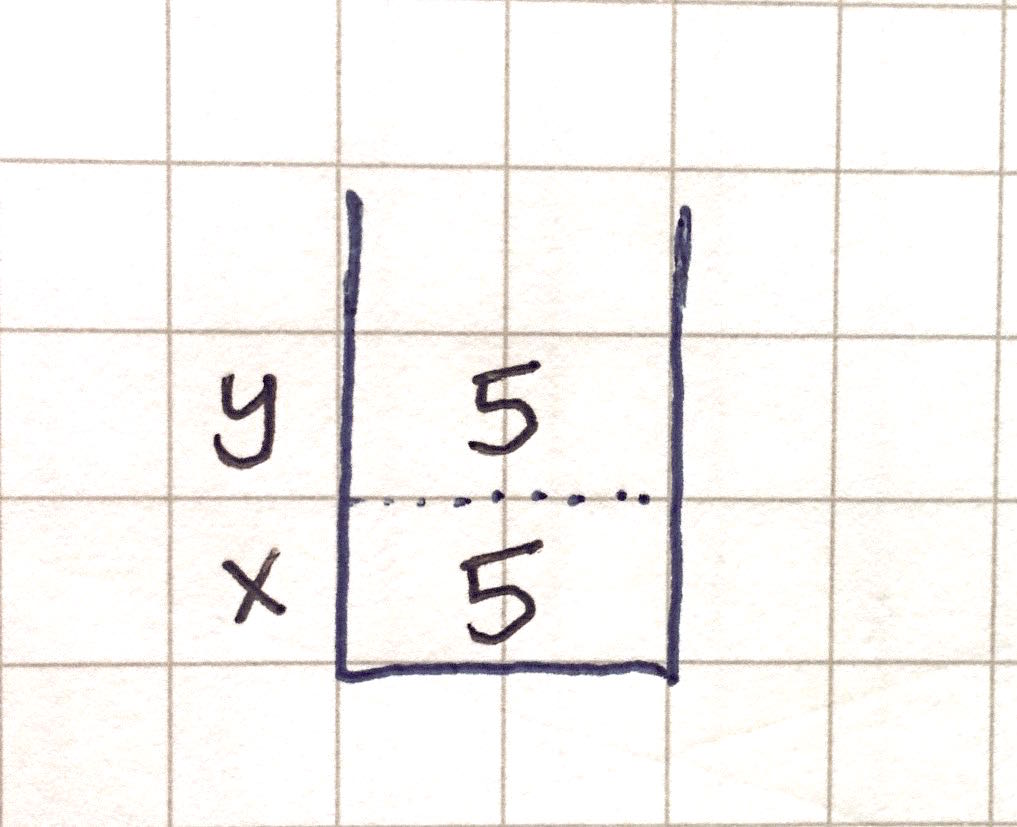 y 5
x 5